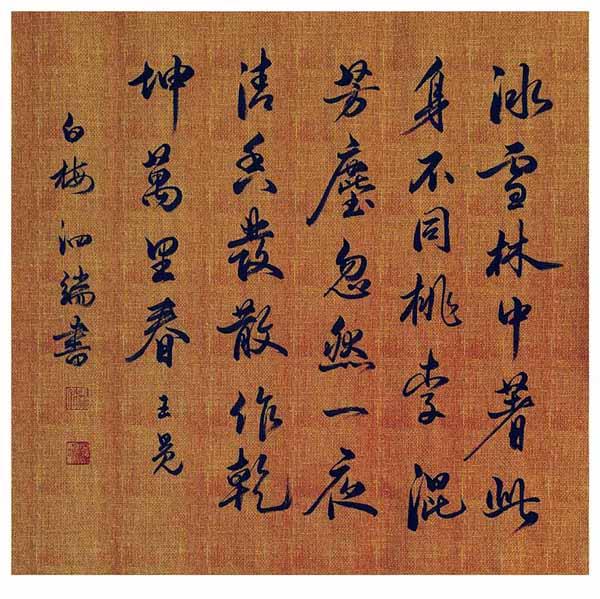 冰雪林中著此
身不同桃李混
芳塵忽然一夜
清香發散作乾
坤萬里春 王冕
白梅 泗端書